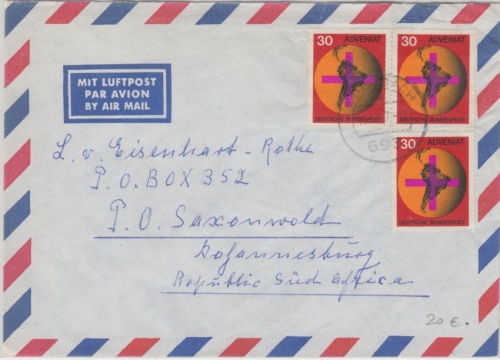 30 ADVENIAT
DEUTSCHE BUNDESPOST
30 ADVENIAT
DEUTSCHE BUNDESPOST
MIT LUFTPOST
PAR AVION
BY AIR MAIL
30 ADVENIAT
DEUTSCHE BUNDESPOST
693
L. v. Eisenhart-Rothe
P.O. BOX 352
P.O. Saxonwold
Johannesburg
Republic Süd Africa
20 €.